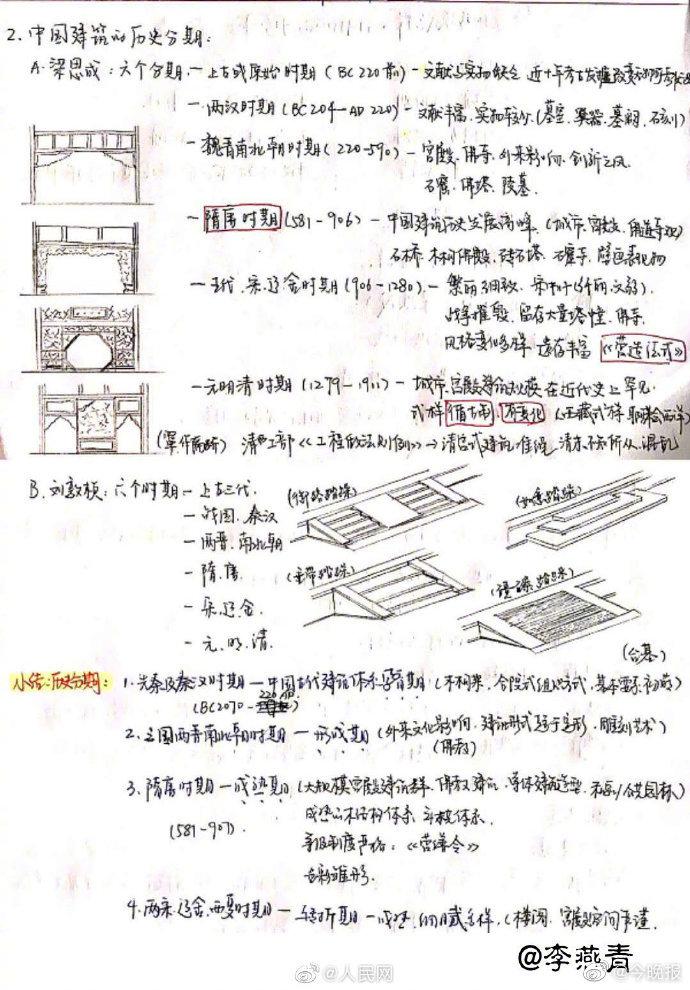 2. 中国建筑的历史分期:
A. 梁思成: 六个分期 — 上古或原始时期 (BC220前) — 文献与实物缺乏 近十年考古发掘
— 两汉时期 (BC204—AD220) — 文献丰富, 实物较少 (墓室, 冥器, 墓祠, 石刻)
— 魏晋南北朝时期 (220-590) — 宫殿、佛寺, 外来影响, 创新之风
石窟、佛塔、陵墓.
— 隋唐时期 (581-906) — 中国建筑历史发展高峰 (城市, 宫殿,
石桥 木构佛殿, 砖石塔 石窟寺 壁画
— 五代、宋辽金时期 (906-1280). — 繁丽细致
战争摧毁, 留存大量塔幢, 佛寺,
风格变化多样 遗存丰富 《营造法式》
— 元明清时期 (1279-1911) — 城市、宫殿建筑规模在近代史上罕见
式样
清 工部《工程做法则例》→ 清官式建筑准绳
B. 刘敦桢: 六个时期 — 上古三代.
— 战国, 秦汉
— 两晋, 南北朝
— 隋, 唐
— 宋辽金
— 元, 明, 清
(御路踏跺)
(如意踏跺)
(垂带踏跺)
(礓磋踏跺)
(台基)
小结: 历史分期:
1. 先秦及秦汉时期 — 中国古代建筑体系 (木构架, 合院式组合方式, 基本要素初成)
(BC2070-220前)
2. 三国两晋南北朝时期 — 形成期 (外来文化影响, 建筑形式趋于定形, 雕刻艺术)
(佛教)
3. 隋唐时期 — 成熟期 (大规模宫殿建筑群, 佛教建筑, 单体建筑造型
(581-907).
成熟的木结构体系 斗栱体系.
等级制度严格: 《营缮令》
色彩雏形.
4. 两宋、辽金、西夏时期 — 转折期 — 成熟, 细腻 (楼阁, 宫殿
@李燕青
@人民网
@今晚报